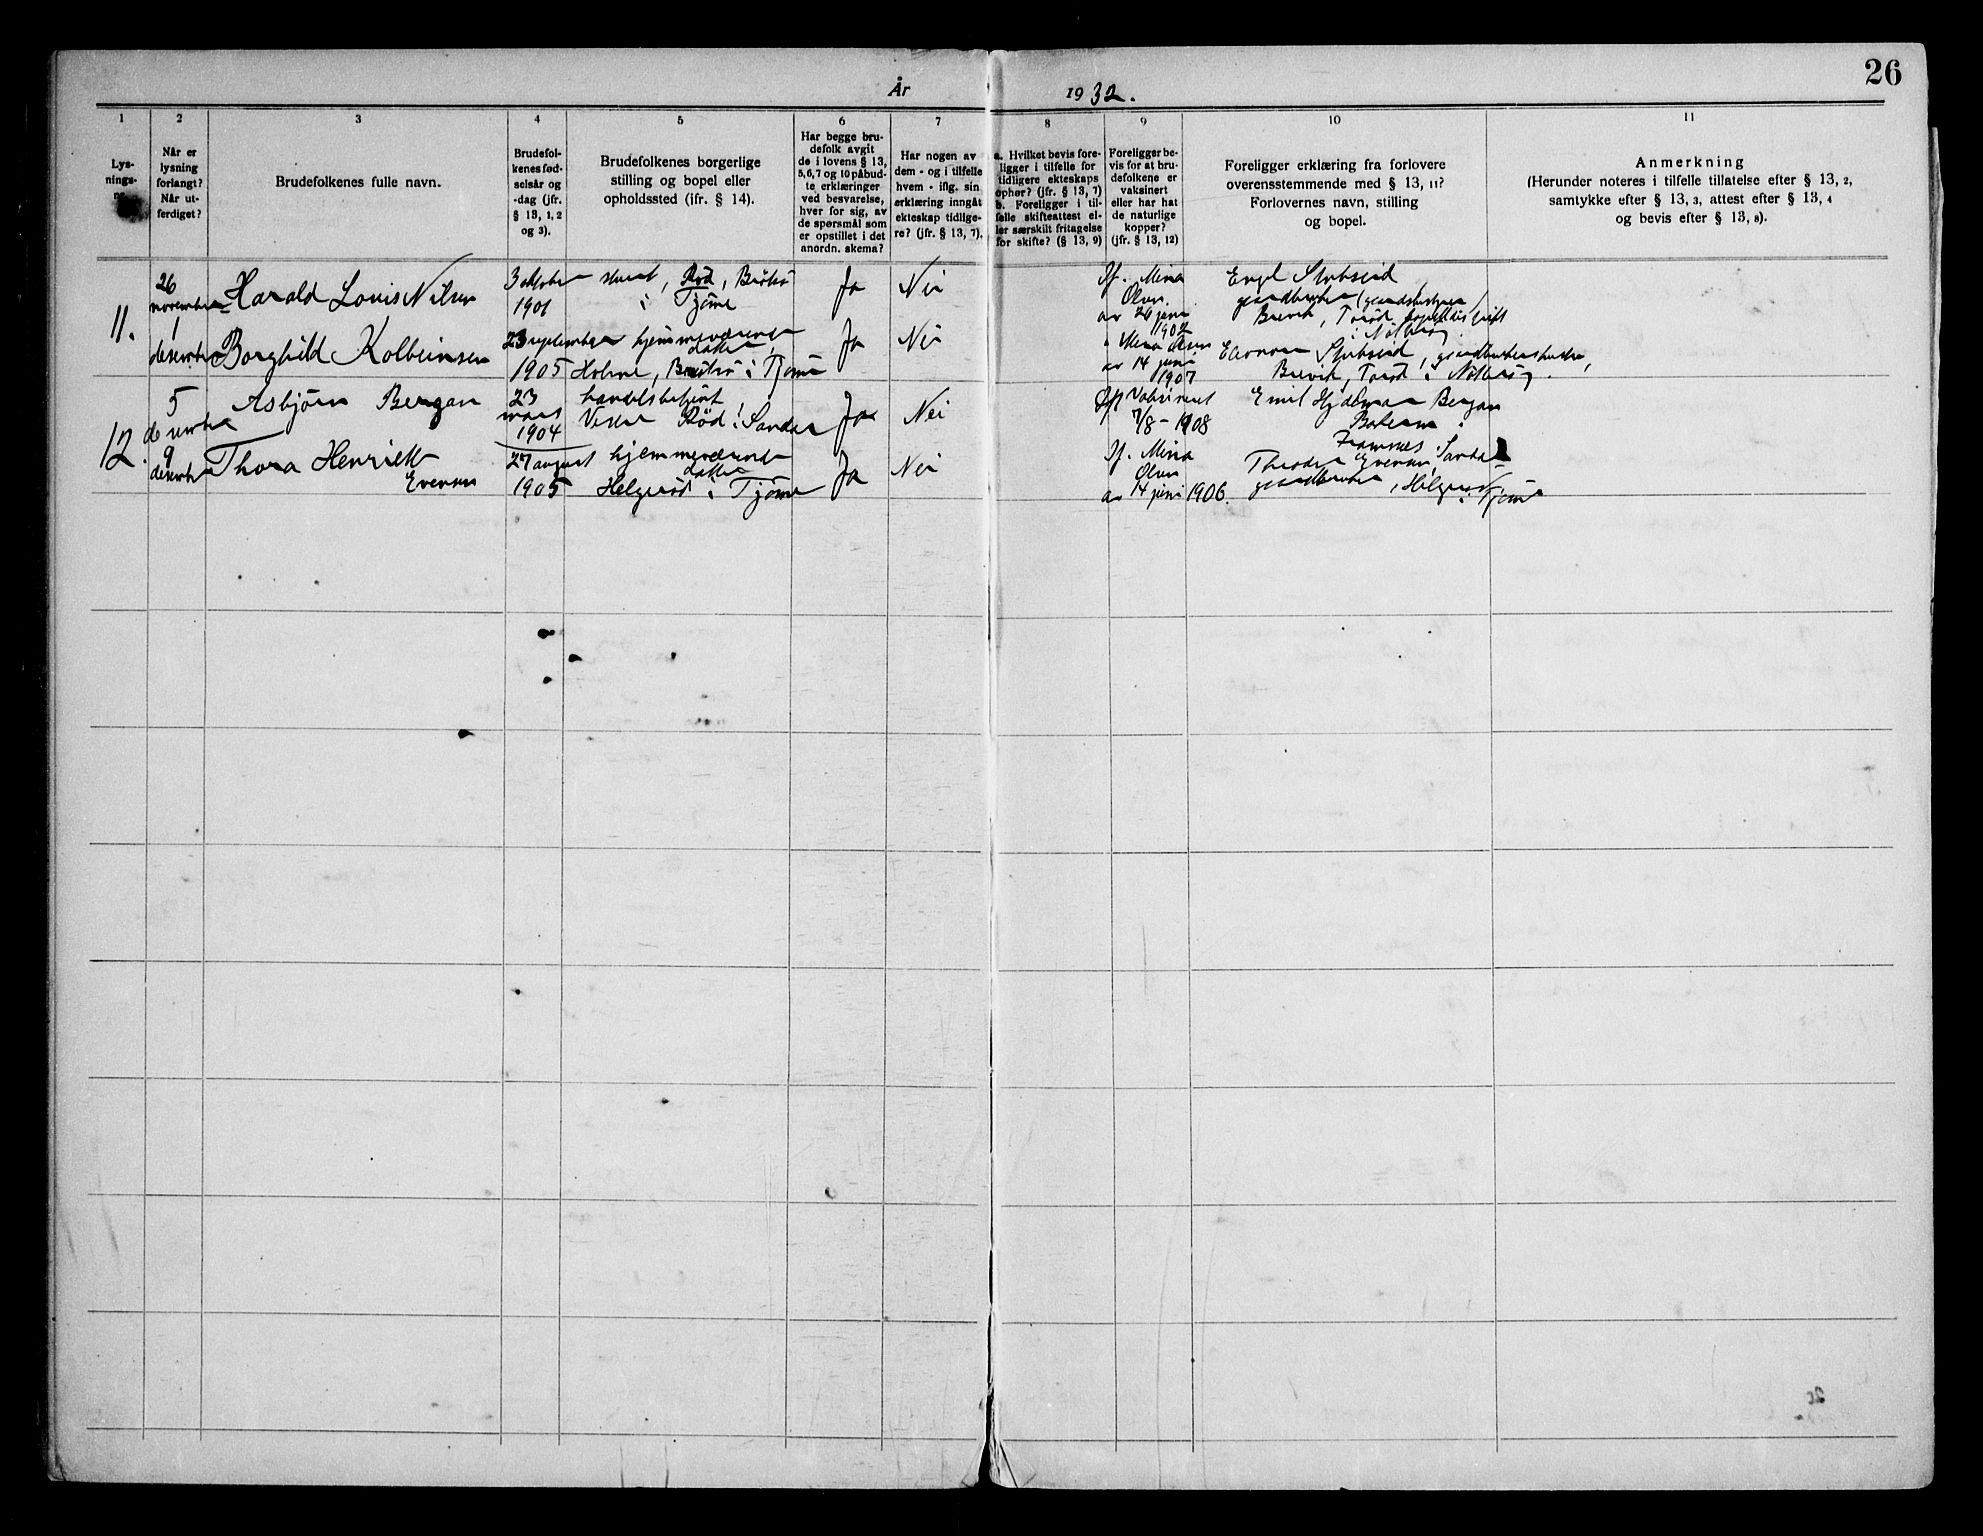 26
År 1932.
1
2
3
4
5
6
7
8
9
10
11
Lys-
nings-
Når er
lysning
forlangt?
Når ut-
ferdiget?
Brudefolkenes fulle navn.
Brudefol-
kenes fød-
selsår og
-dag (jfr.
§ 13, 1, 2
og 3).
Brudefolkenes borgerlige
stilling og bopel eller
opholdssted (jfr. § 14).
Har begge bru-
defolk avgit
de i lovens § 13,
5, 6, 7 og 10 påbud-
te erklæringer
ved besvarelse,
hver for sig, av
de spørsmål som
er opstillet i det
anordn. skema?
Har nogen av
dem - og i tilfelle
hvem - iflg. sin
erklæring inngåt
ekteskap tidlige-
re? (jfr. § 13, 7).
a. Hvilket bevis fore-
ligger i tilfelle for
tidligere ekteskaps
ophør? (jfr. § 13, 7)
b. Foreligger i til-
felle skifteattest el-
ler særskilt fritagelse
for skifte? (§ 13, 9)
Foreligger be-
vis for at bru-
defolkene er
vaksinert
eller har hat
de naturlige
kopper?
(jfr. § 13, 12)
Foreligger erklæring fra forlovere
overensstemmende med § 13, 11?
Forlovernes navn, stilling
og bopel.
Anmerkning
(Herunder noteres i tilfelle tillatelse efter § 13, 2,
samtykke efter § 13, 3, attest efter § 13, 4
og bevis efter § 13, 8).
11.
26
november
1
desember
Harald Louis Nilsen
3 oktober
1901
Rød, Brøtsø
i Tjøme
Ja
Nei
Mina
Olsen
av 24 juni
1902
Engl
gaardbruker
Brevik, Torød
i Nøtterøy
Borghild Kolbeinsen
23 september
1905
hjemmeværende
datter
Holme, Brøtsø i Tjøme
Ja
Nei
Mina Olsen
av 14 juni
1907
gaardbrukerhustru,
Brevik, Torød i Nøtterøy.
12.
5
desember
9
desember
Asbjørn Bergan
23
mars
1904
handelsbetjent
Rød i Sandar
Ja
Nei
Vaksinert
7/8 - 1908
Emil Hjalmar Bergan
Framnes i Sandar
Thora Henriette
Evensen
27 august
1905
hjemmeværende
datter
Helgerød i Tjøme
Ja
Nei
Mina
Olsen
av 14 juni 1906.
Evensen
gaardbruker, Helgerød
i Tjøme